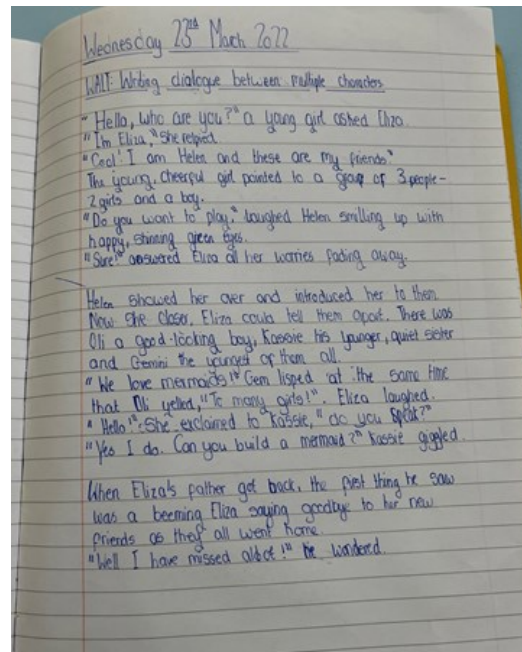 Wednesday 23rd March 2022
WALT: Writing dialogue between multiple characters
"Hello, who are you?" a young girl asked Eliza.
"I'm Eliza," She relpied.
"Cool! I am Helen and these are my friends"
The young, cheerful girl pointed to a group of 3 people -
2 girls and a boy.
"Do you want to play," laughed Helen smilling up with
happy, shinning green eyes.
"Sure!" answered Eliza all her worries fading away.
Helen showed her over and introduced her to them
Now she closer, Eliza could tell them apart. There was
Oli a good-looking boy, Kassie his younger, quiet sister
and Gemini the youngest of them all.
"We love mermaids!" Gem lisped at the same time
that Oli yelled, "To many girls!". Eliza laughed.
"Hello!" She exclaimed to Kassie, "do you speak?"
"Yes I do. Can you build a mermaid?" Kassie giggled.
When Eliza's father got back, the first thing he saw
was a beeming Eliza saying goodbye to her new
friends as they all went home.
"Well I have missed alot!" he wondered.